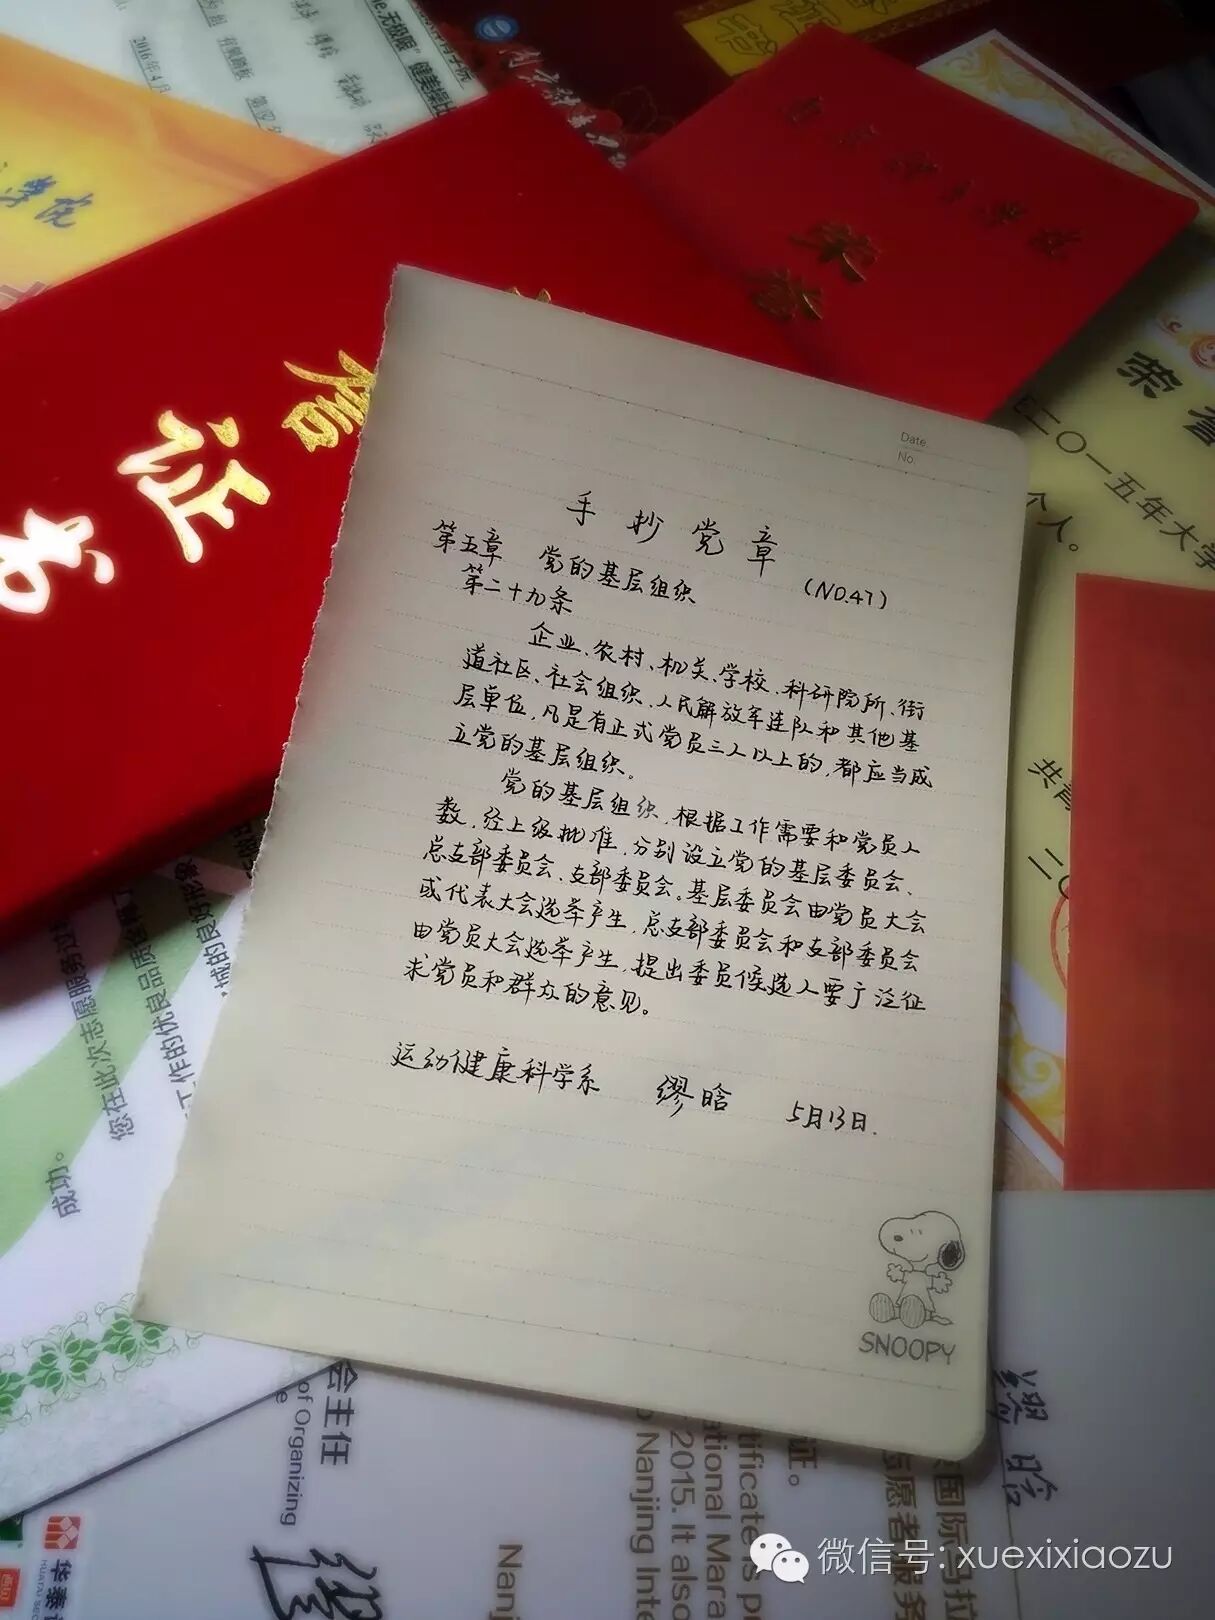 2016年4月
学院
荣誉
证书
荣誉
二〇一五年大学
个人。
Date
No.
手抄党章
(NO.47)
第五章 党的基层组织
第二十九条
企业、农村、机关、学校、科研院所、街
道社区、社会组织、人民解放军连队和其他基
层单位,凡是有正式党员三人以上的,都应当成
立党的基层组织。
党的基层组织,根据工作需要和党员人
数,经上级批准,分别设立党的基层委员会、
总支部委员会、支部委员会。基层委员会由党员大会
或代表大会选举产生,总支部委员会和支部委员会
由党员大会选举产生,提出委员候选人要广泛征
求党员和群众的意见。
运动健康科学系 缪晗 5月13日.
SNOOPY
您在此次志愿服务过
工作的优良品质诠释了
城的良好形象
成功。
会主任
of Organizing
缪晗
证。
国际马拉
志愿者服务
tificate is p
ational Mara
2015. It also
Nanjing Inte
Nanj
华泰
HUATAI SEC
微信号: xuexixiaozu